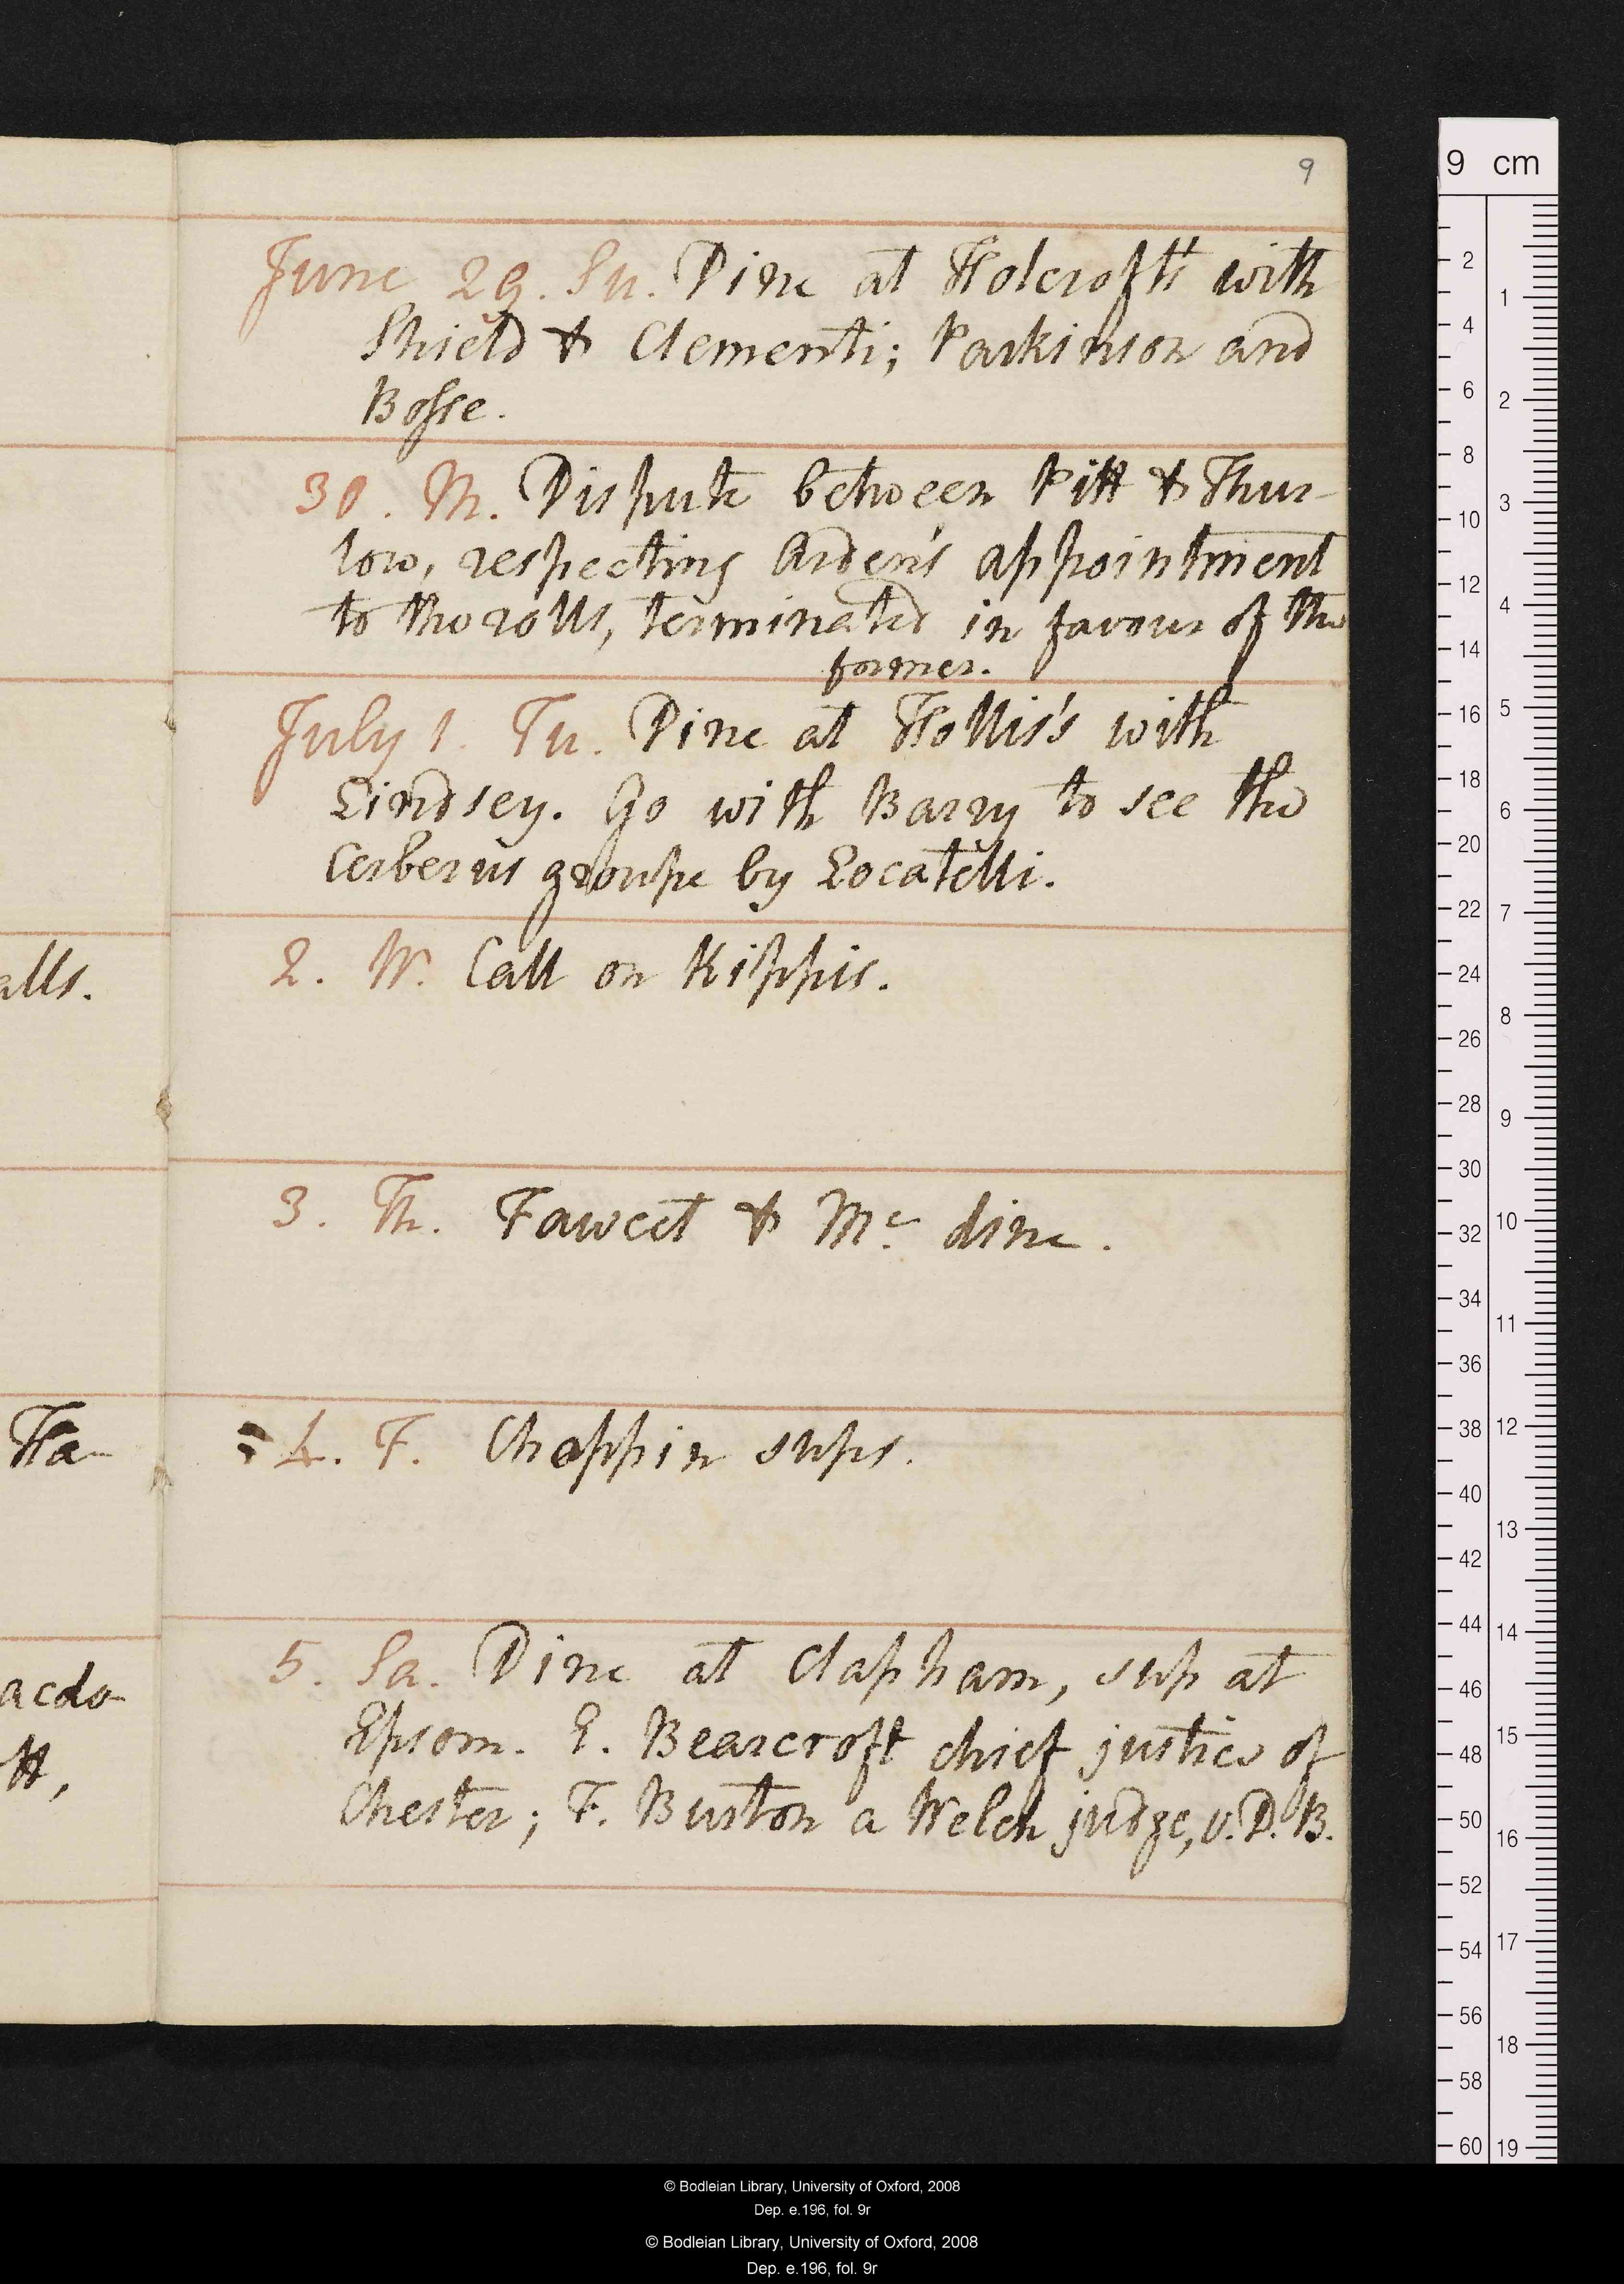 9
June 29. Su. Dine at Holcroft's with
Shield & Clementi; Parkinson and
Bosse.
30. M. Dispute between Pitt & Thur-
low, respecting Arden's appointment
to the rolls, terminated in favour of the
former.
July 1. Tu. Dine at Hollis's with
Lindsey. Go with Barry to see the
Cerberus groupe by Locatelli.
alls.
2. W. Call on Kippis.
3. Th. Fawcet & Mc. dine.
Ha-
4. F. Chappin sups.
5. Sa. Dine at Clapham, sup at
acdo-
Epsom. E. Bearcroft chief justice of
tt,
Chester; F. Burton a Welch judge, v. D. B.
9 cm
2
4
6
8
10
12
14
16
18
20
22
24
26
28
30
32
34
36
38
40
42
44
46
48
50
52
54
56
58
60
1
2
3
4
5
6
7
8
9
10
11
12
13
14
15
16
17
18
19
© Bodleian Library, University of Oxford, 2008
Dep. e.196, fol. 9r
© Bodleian Library, University of Oxford, 2008
Dep. e.196, fol. 9r